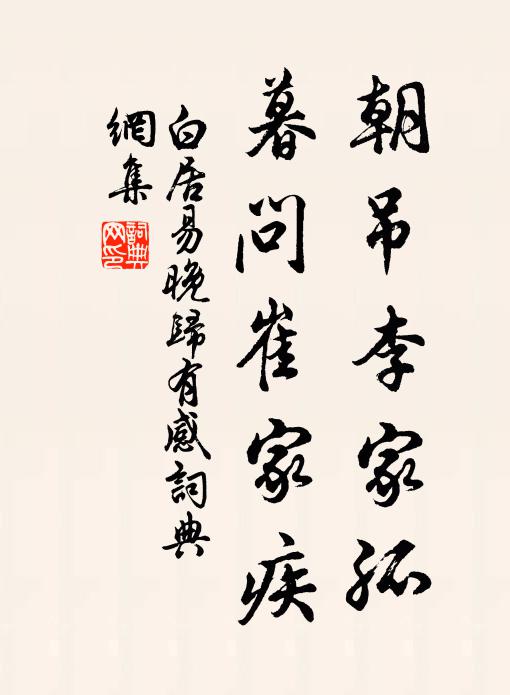 朝吊李家孤
暮問崔家疾
白居易晚歸有感詞典
網集
詞典
网印